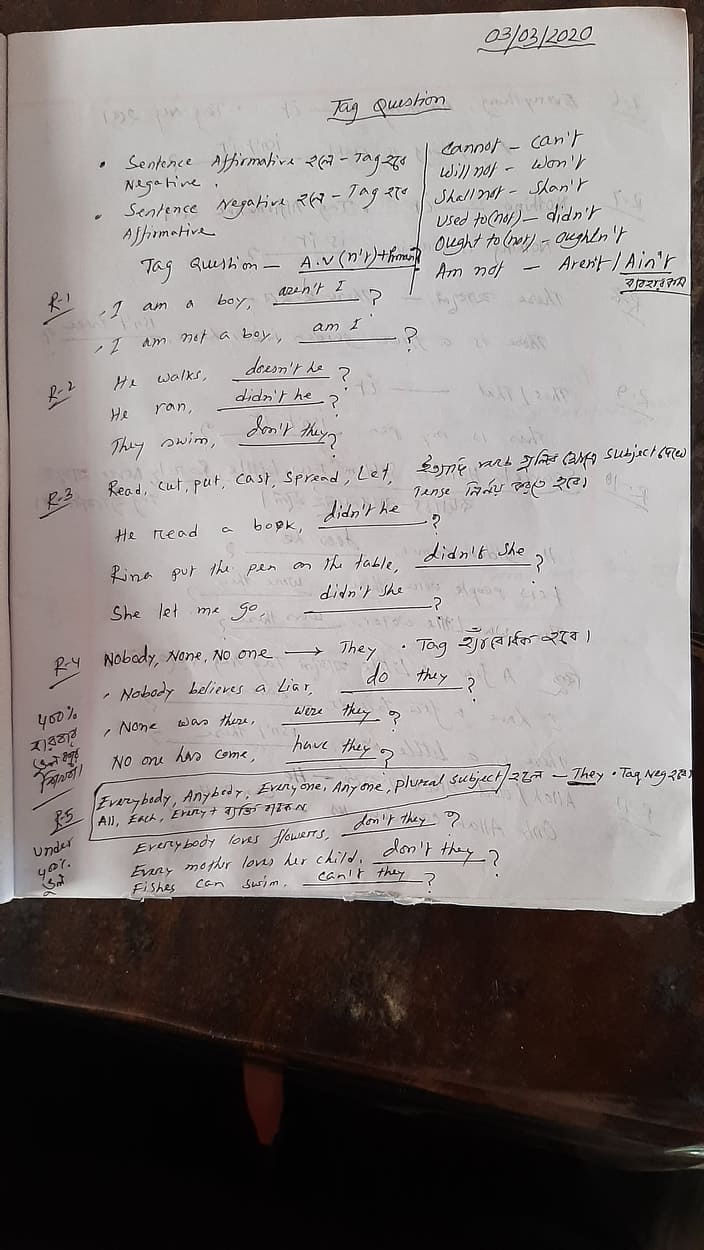 03/03/2020
Tag Question
• Sentence Affirmative হলে - Tag হবে
Negative.
• Sentence Negative হলে - Tag হবে
Affirmative
Tag Question — A.V (n't) +
cannot - can't
will not - won't
Shall not - Shan't
used to (not) - didn't
Ought to (not) - oughtn't
Am not - Aren't / Ain't
R-1 , I am a boy, aren't I ?
, I am not a boy, am I ?
R-2 He walks, doesn't he ?
He ran, didn't he ?
They swim, don't they ?
R-3 Read, cut, put, cast, spread, Let, ইত্যাদি verb গুলির ক্ষেত্রে subject দেখে
Tense নির্নয় করতে হবে।
He read a book, didn't he ?
Rina put the pen on the table, didn't she ?
She let me go, didn't she ?
R-4 Nobody, None, No one → They • Tag হ্যাঁ বোধক হবে।
, Nobody believes a Liar, do they ?
, None was there, were they ?
No one has come, have they ?
R-5 Everybody, Anybody, Everyone, Anyone, plural subject হলে - They • Tag Neg হবে
All, Each, Every + ব্যক্তি বাচক N
Everybody loves flowers, don't they ?
Every mother loves her child, don't they ?
Fishes can swim, can't they ?
under